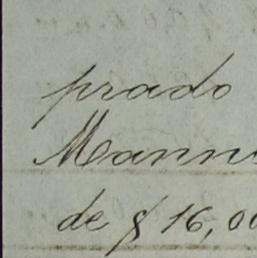 prado
Mann
de $ 16,00